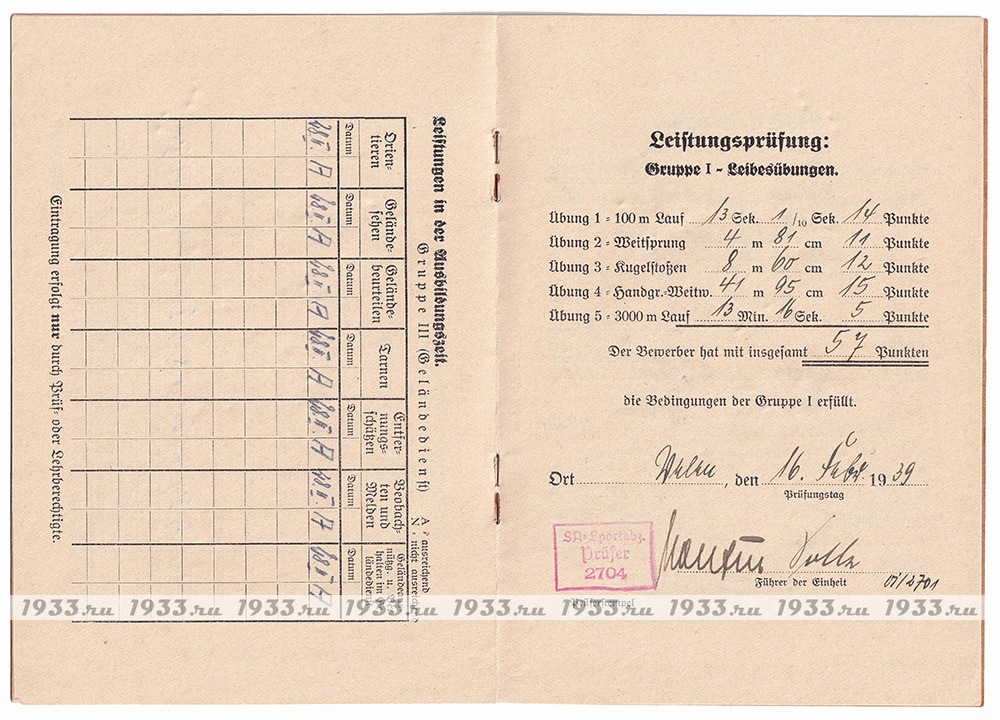 Leistungen in der Ausbildungszeit.
Gruppe III (Geländedienst)
A = ausreichend
N = nicht ausreichend
Orien-
tieren
Gelände-
sehen
Gelände-
beurteilen
Tarnen
Entfer-
nungs-
schätzen
Beobach-
ten und
Melden
Datum Datum Datum Datum Datum Datum Datum
A A A A A A A
Eintragung erfolgt nur durch Prüf- oder Lehrberechtigte.
Leistungsprüfung:
Gruppe I - Leibesübungen.
Übung 1 - 100 m Lauf 13 Sek. 1/10 Sek. 14 Punkte
Übung 2 - Weitsprung 4 m 81 cm 11 Punkte
Übung 3 - Kugelstoßen 8 m 60 cm 12 Punkte
Übung 4 - Handgr.-Weitw. 41 m 95 cm 15 Punkte
Übung 5 - 3000 m Lauf 13 Min. 16 Sek. 5 Punkte
Der Bewerber hat mit insgesamt 57 Punkten
die Bedingungen der Gruppe I erfüllt.
Ort , den 16. Febr. 1939
Prüfungstag
SA-Sportabz.
Prüfer
2704
Führer der Einheit
Prüferstempel
1933.ru 1933.ru 1933.ru 1933.ru 1933.ru 1933.ru 1933.ru 1933.ru 1933.ru